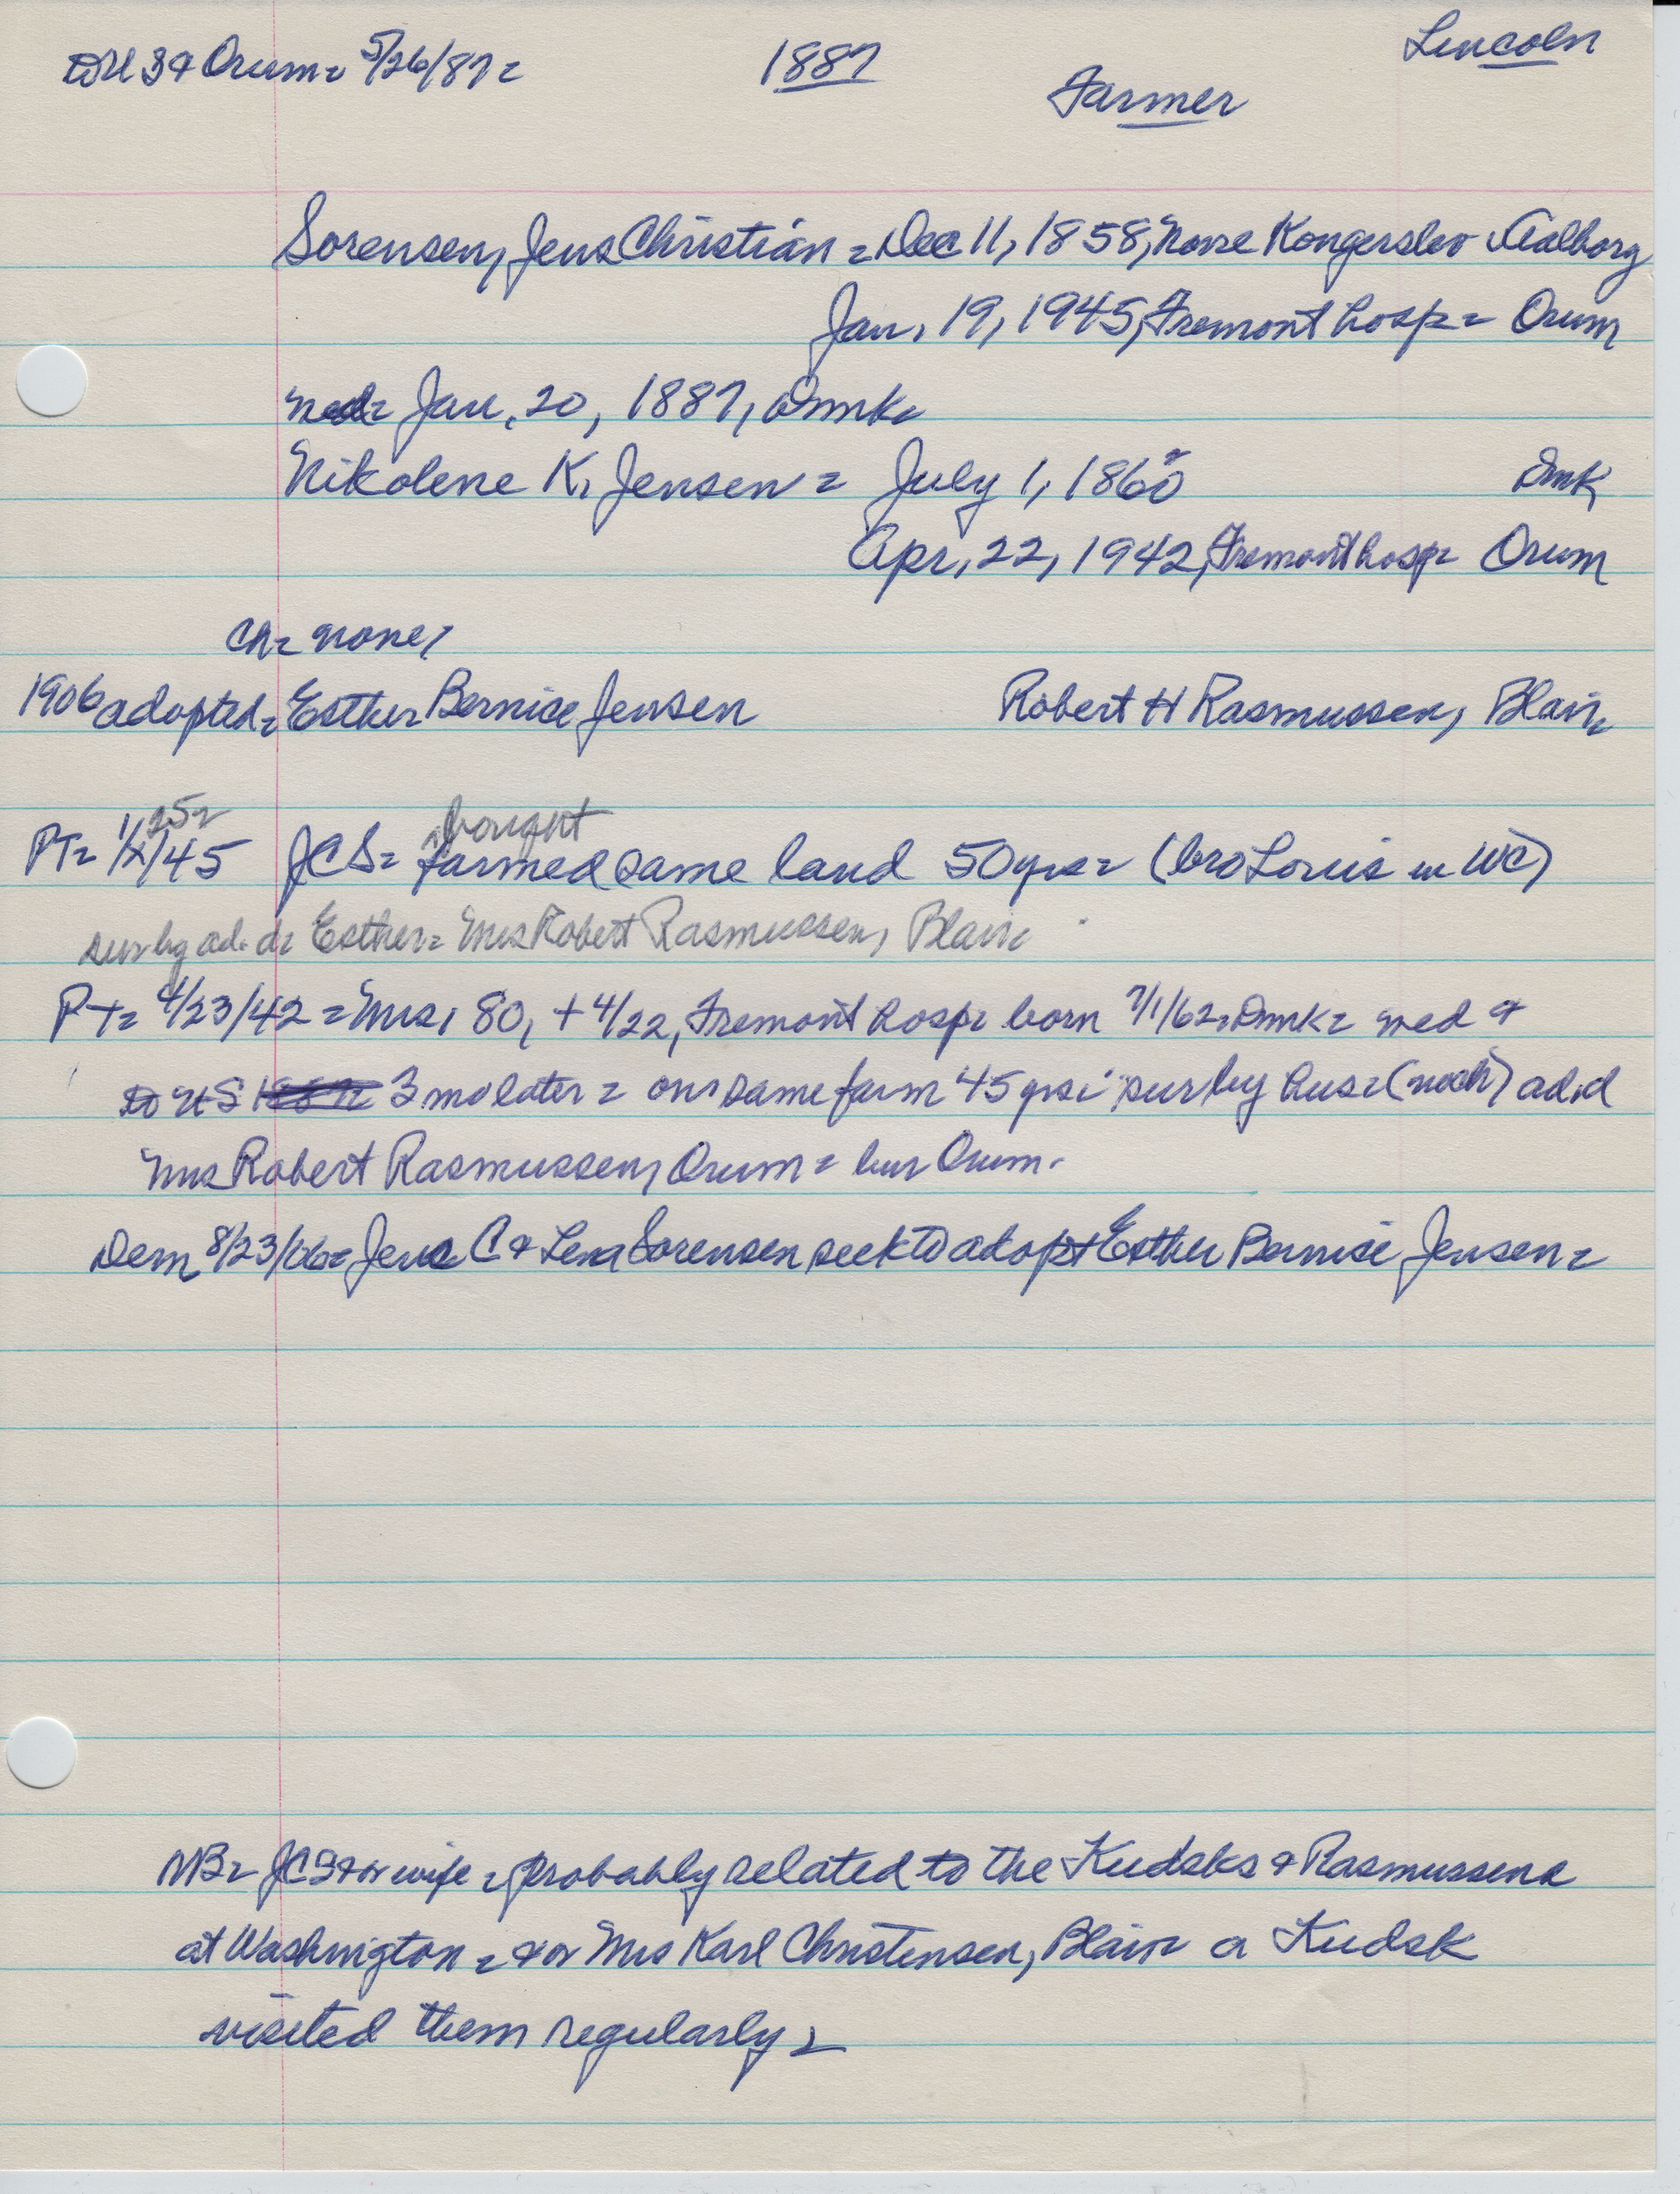 Lincoln
to US & Orum = 5/26/87 = 1887
Farmer
Sorensen, Jens Christian = Dec 11, 1858, Norre Kongerslev Aalborg
Jan. 19, 1945, Fremont hosp = Orum
md = Jan. 20, 1887, Dnmk =
Nikolene K. Jensen = July 1, 1860 Dmk
Apr. 22, 1942, Fremont hosp = Orum
Ch = none,
1906 adopted = Esther Bernice Jensen Robert H Rasmussen, Blair =
25 = bought
PT = 1/ /45 JCS = farmed same land 50 yrs = (bro Louis in WC)
sur by ad. d = Esther = Mrs Robert Rasmussen, Blair =
PT = 4/23/42 = Mrs, 80, + 4/22, Fremont hosp = born 7/1/62, Dnmk = med &
to US 3 mo later = on same farm 45 yrs = sur by hus = (nech) ad. d
Mrs Robert Rasmussen, Orum = bur Orum.
Dem 8/23/06 = Jens C & Lena Sorensen seek to adopt Esther Bernice Jensen =
NB = JCS & or wife = probably related to the Kudsks & Rasmussens
at Washington = & or Mrs Karl Christensen, Blair = a Kudsk
visited them regularly =